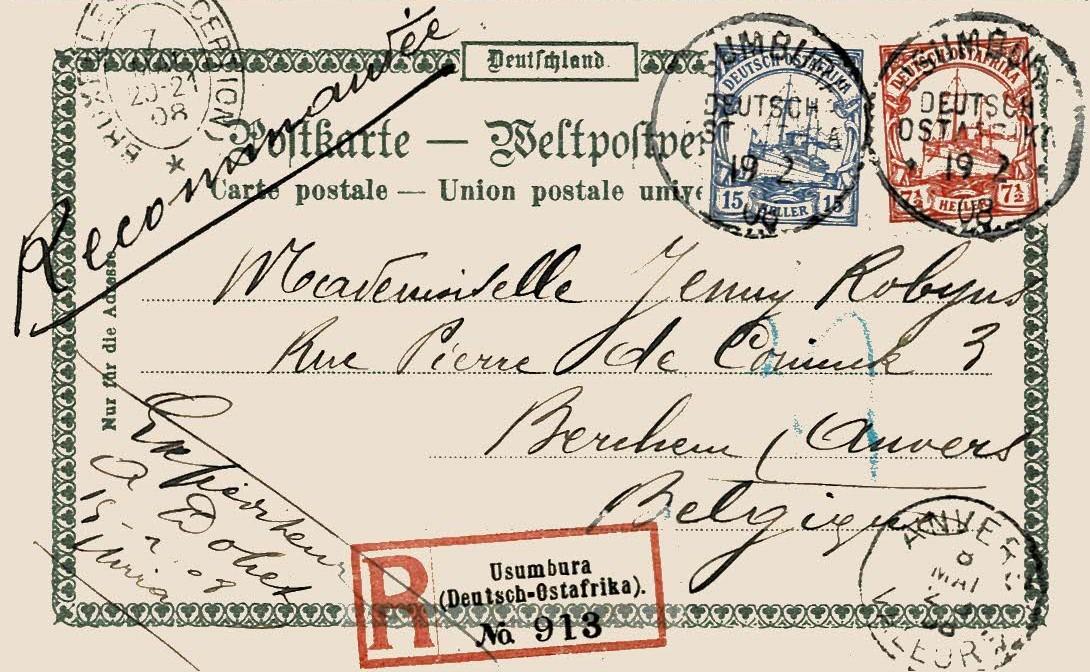 Recommandée
Deutschland
Postkarte — Weltpostver
Carte postale — Union postale unive
BRUXELLES
7
20-21
08
USUMBURA
DEUTSCH
OSTAFRIKA
19 2
08
DEUTSCH-OSTAFRIKA
15 HELLER 15
USUMBURA
DEUTSCH
OSTAFRIKA
19 2
08
DEUTSCH-OSTAFRIKA
7½ HELLER 7½
Nur für die Adresse
Mademoiselle Jenny Robyns
Rue Pierre de 3
Berchem (Anvers
Belgique
Expéditeur
15-2-08
R
Usumbura
(Deutsch-Ostafrika).
No. 913
ANVERS
8
MAI
08
VALEURS